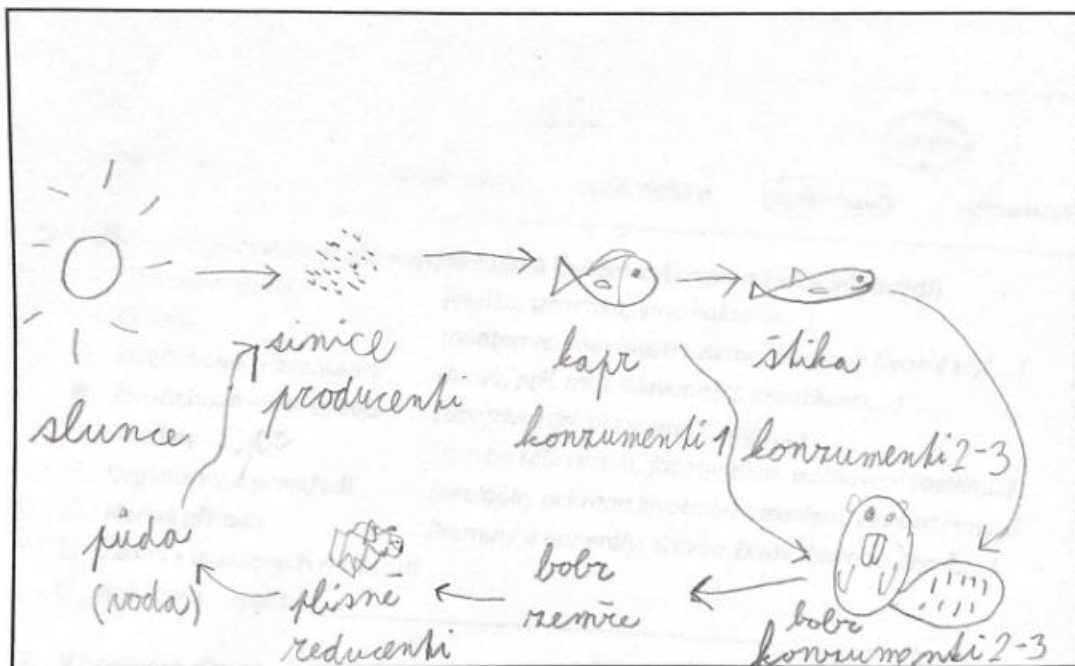 slunce
sinice
producenti
kapr
konzumenti 1
štika
konzumenti 2-3
bobr
konzumenti 2-3
bobr
zemře
plísně
reducenti
půda
(voda)